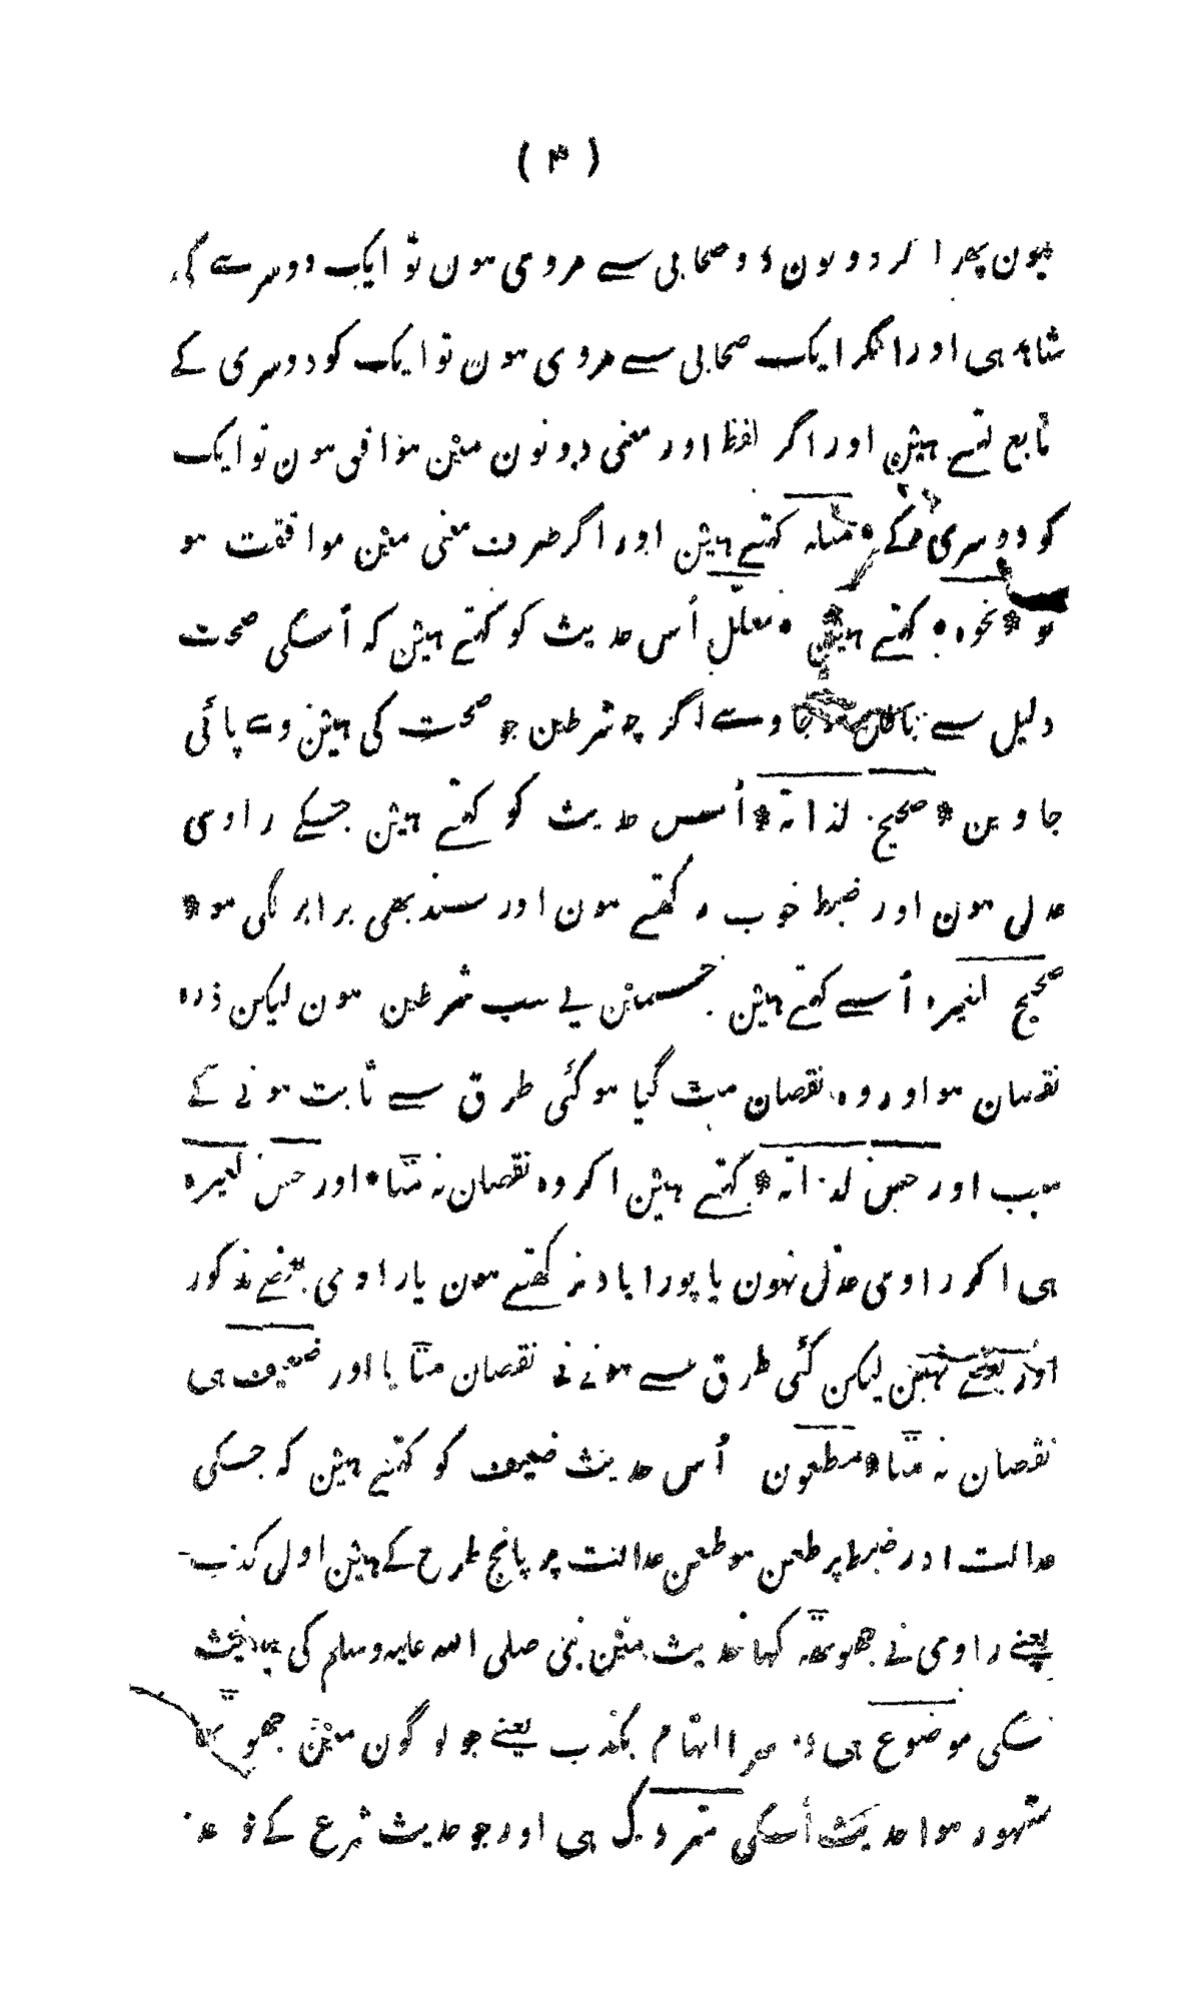 ( ۴ )
ہون پھر اگر دونون دو صحابی سے مروی ہون تو ایک دوسرے کی
شاہد ہی اور اگر ایک صحابی سے مروی ہون تو ایک کو دوسری کے
تابع کہتے ہین اور اگر لفظ اور معنی دونون مین موافق ہون تو ایک
کو دوسری کے * مثلہ کہتے ہین اور اگر صرف معنی مین موافقت ہو
تو * نحوہ * کہتے ہین * معلل اُس حدیث کو کہتے ہین کہ اُسکی صحت
دلیل سے جاوے اگر چہ شرطین جو صحت کی ہین وے پائی
جاوین * صحیح لذاتہ * اُسس حدیث کو کہتے ہین جسکے راوی
عدل ہون اور ضبط خوب رکھتے ہون اور سند بھی برابر لگی ہو *
صحیح لغیرہ اُسے کہتے ہین جسمین یے سب شرطین ہون لیکن ذرہ
نقصان ہو اور وہ نقصان مٹ گیا ہو کئی طرق سے ثابت ہونے کے
سبب اور حسن لذاتہ * کہتے ہین اگر وہ نقصان نہ مٹا * اور حسن لغیرہ
ہی اگر راوی عدل نہون یا پورا یاد نہ رکھتے ہون یا راوی بعضے مذکور
اور بعضے نہین لیکن کئی طرق سے ہونے نے نقصان مٹایا اور ضعیف ہی
نقصان نہ مٹا * مطعون اُس حدیث ضعیف کو کہتے ہین کہ جسکی
عدالت اور ضبط پر طعن ہو طعن عدالت پر پانچ طرح کے ہین اول کذب
یعنے راوی نے جھوٹھہ کہا حدیث مین نبی صلی اللہ علیہ وسلم کی حدیث
سکی موضوع ہی دوسرا اتہام بکذب یعنے جو لوگون مین جھوٹھا
مشہور ہوا حدیث اُسکی متروک ہی اور جو حدیث شرع کے قواعد